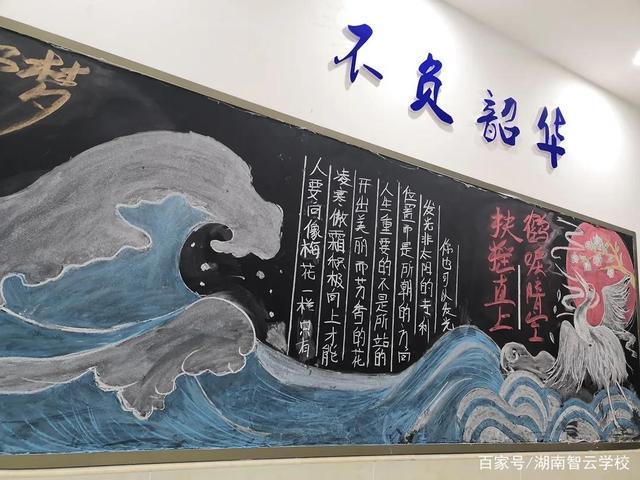 不负韶华
梦
人要向像梅花一样只有
凌寒傲霜积极向上才能
开出美丽而芳香的花
人生重要的不是所站的
位置而是所朝的方向
发光非太阳的专利
你也可以发光
鹤唳晴空
扶摇直上
百家号/湖南智云学校